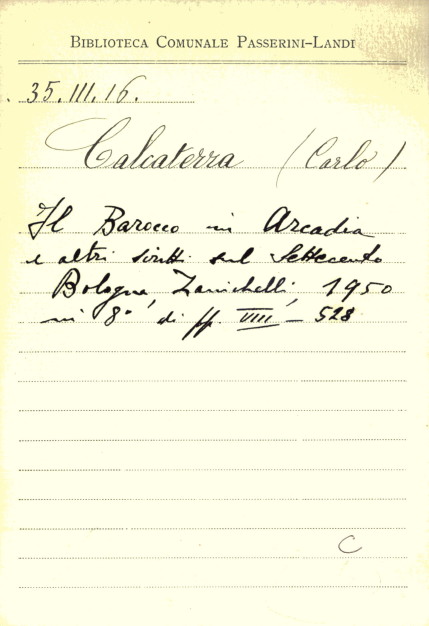 BIBLIOTECA COMUNALE PASSERINI-LANDI
35.III.16.
Calcaterra (Carlo)
Il Barocco in Arcadia
e altri scritti sul Settecento
Bologna, Zanichelli, 1950
in 8° di pp. VIII - 528
C